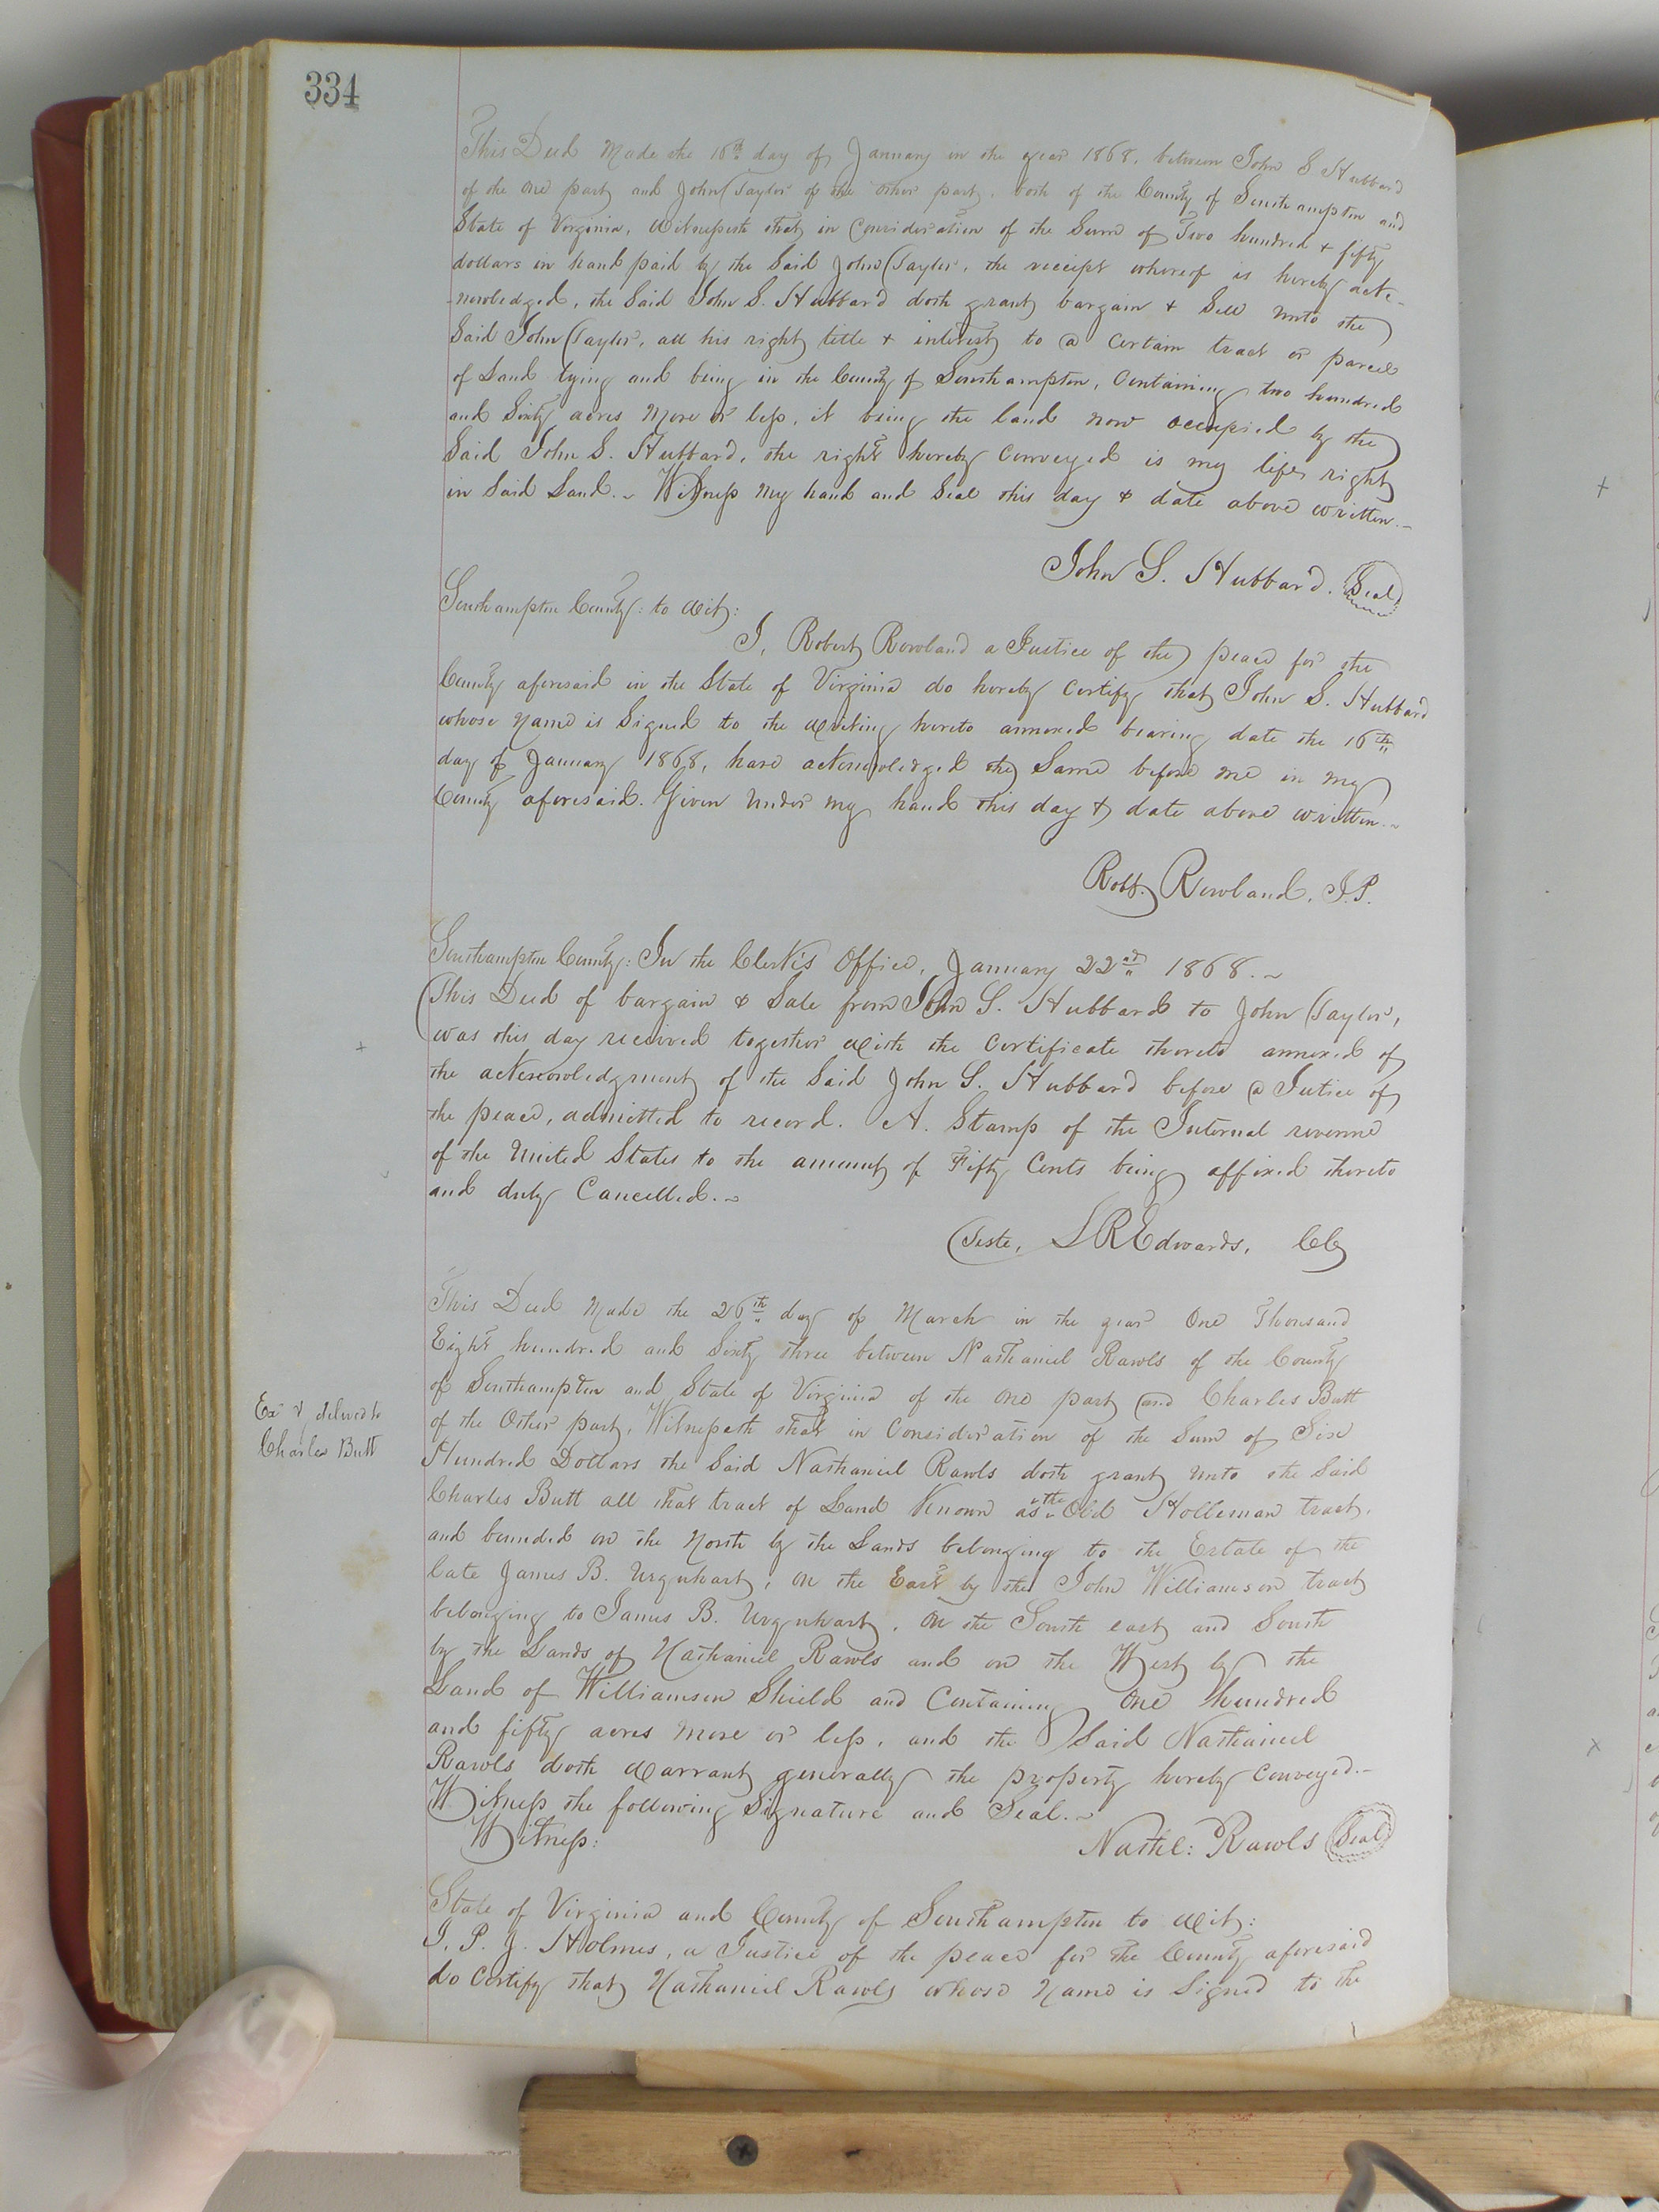 334
This Deed Made the 16th day of January in the year 1868, between John S Hubbard
of the one part and John Taylor of the other part, both of the County of Southampton and
State of Virginia, Witnesseth that in Consideration of the Sum of Two hundred & fifty
dollars in hand paid by the Said John Taylor, the receipt whereof is hereby ack-
-nowledged, the Said John S. Hubbard doth grant bargain & Sell unto the
Said John Taylor, all his right title & interest to a Certain tract or parcel
of Land lying and being in the County of Southampton, Containing two hundred
and Sixty acres More or less, it being the land now occupied by the
Said John S. Hubbard, the right hereby Conveyed is my life right
in Said Land.~ Witness My hand and Seal this day & date above written.~
John S. Hubbard. Seal
Southampton County: to Wit:
I, Robert Rowland a Justice of the peace for the
County aforesaid in the State of Virginia do hereby Certify that John S. Hubbard
whose Name is Signed to the Writing hereto annexed bearing date the 16th
day of January 1868, have acknowledged the Same before me in my
County aforesaid. Given under my hand this day & date above written.~
Robt. Rowland, J.P.
Southampton County: In the Clerk's Office, January 22nd 1868.~
This Deed of bargain & Sale from John S. Hubbard to John Taylor,
was this day received together with the Certificate thereto annexed of
the acknowledgment of the Said John S. Hubbard before a Jutice of
the peace, admitted to record. A. Stamp of the Internal revenue
of the United States to the amount of Fifty Cents being affixed thereto
and duly Cancelled.~
Teste, L R Edwards, CC
This Deed Made the 26th day of March in the year One Thousand
Eight hundred and Sixty three between Nathaniel Rawls of the County
of Southampton and State of Virginia of the one part and Charles Butt
of the Other part, Witnesseth that in Consideration of the Sum of Six
Ex & delivered to
Charles Butt
Hundred Dollars the Said Nathaniel Rawls doth grant unto the Said
Charles Butt all that tract of Land Known as the Old Holleman tract,
and bounded on the North by the Lands belonging to the Estate of the
late James B. Urquhart, on the East by the John Williamson tract
belonging to James B. Urquhart, on the South east and South
by the Lands of Nathaniel Rawls and on the West by the
Land of Williamson Shield and Containing One hundred
and fifty acres more or less, and the Said Nathaniel
Rawls doth Warrant generally the property hereby Conveyed.~
Witness the following Signature and Seal.~
Witness:
Nathl: Rawls Seal
State of Virginia and County of Southampton to Wit:
I, P. J. Holmes, a Justice of the peace for the County aforesaid
do Certify that Nathaniel Rawls whose Name is Signed to the